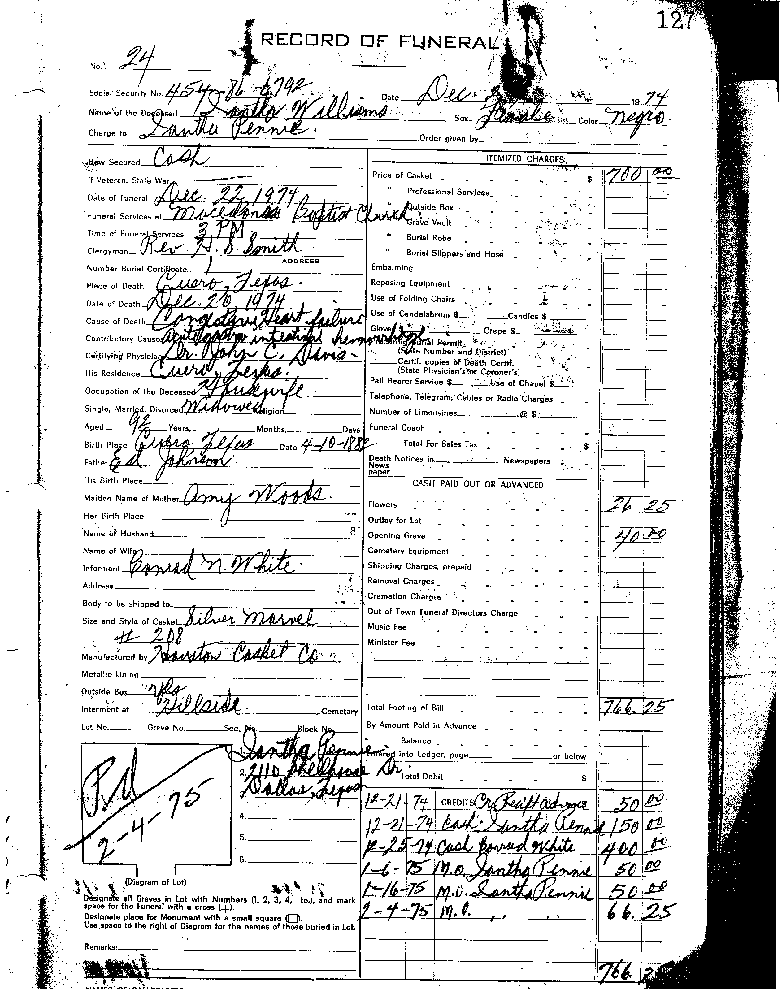 127
RECORD OF FUNERAL
No. 24
Social Security No. 454-86-6792 Date Dec. 1974
Name of the Deceased Santha Williams Sex Female Color Negro
Charge to Santha Pennie. Order given by
How Secured Cash
If Veteran, State War
Date of Funeral Dec. 22, 1974
Funeral Services at Macedonia Baptist Church
Time of Funeral Services 3 PM
Clergyman Rev. H. S. Smith
ADDRESS
Number Burial Certificate
Place of Death Cuero, Texas.
Date of Death Dec. 20, 1974
Cause of Death Congestive Heart failure
Contributory Cause intestinal
Certifying Physician Dr. John C. Davis
His Residence Cuero, Texas.
Occupation of the Deceased Housewife
Single, Married, Divorced Widowed Religion
Aged 92 Years, Months, Days
Birth Place Cuero Texas Date 4-10-1882
Father Ed Johnson
His Birth Place
Maiden Name of Mother Amy Woods.
Her Birth Place
Name of Husband
Name of Wife
Informant Conrad N. White
Address
Body to be shipped to
Size and Style of Casket Silver Marvel
# 208
Manufactured by Houston Casket Co
Metallic Lining
Outside Box
Interment at Hillside Cemetary
Lot No. Grave No. Sec. No. Block No.
Santha Pennie
2110 Dr.
Dallas, Texas
Pd
2-4-75
2.
4.
5.
6.
(Diagram of Lot)
Designate all Graves in Lot with Numbers (1, 2, 3, 4, to.), and mark
space for the Funeral with a cross (+).
Designate place for Monument with a small square (□).
Use space to the right of Diagram for the names of those buried in Lot.
Remarks:
ITEMIZED CHARGES
Price of Casket $ 700 00
" Professional Services
" Outside Box
" Grave Vault
" Burial Robe
" Burial Slippers and Hose
Embalming
Reposing Equipment
Use of Folding Chairs
Use of Candelabrum $ Candles $
Gloves Crepe $
Burial Permit
(State Number and District)
Certif. copies of Death Certif.
(State Physician's or Coroner's)
Pall Bearer Service $ Use of Chapel $
Telephone, Telegram, Cables or Radio Charges
Number of Limousines @ $
Funeral Coach
Total For Sales Tax $
Death Notices in Newspapers
News
paper
CASH PAID OUT OR ADVANCED
Flowers 26 25
Outlay for Lot
Opening Grave 40 00
Cemetary Equipment
Shipping Charges, prepaid
Removal Charges
Cremation Charges
Out of Town Funeral Directors Charge
Music Fee
Minister Fee
Total Footing of Bill 766 25
By Amount Paid in Advance
Balance
Entered into Ledger, page or below
Total Debit $
12-21 74 CREDITS 50 00
12-21-74 Cash Santha Pennie 150 00
12-25-74 Cash Conrad White 400 00
1-6-75 M.O. Santha Pennie 50 00
1-16-75 M.O. Santha Pennie 50 00
2-4-75 M.O. " " 66 25
766 25